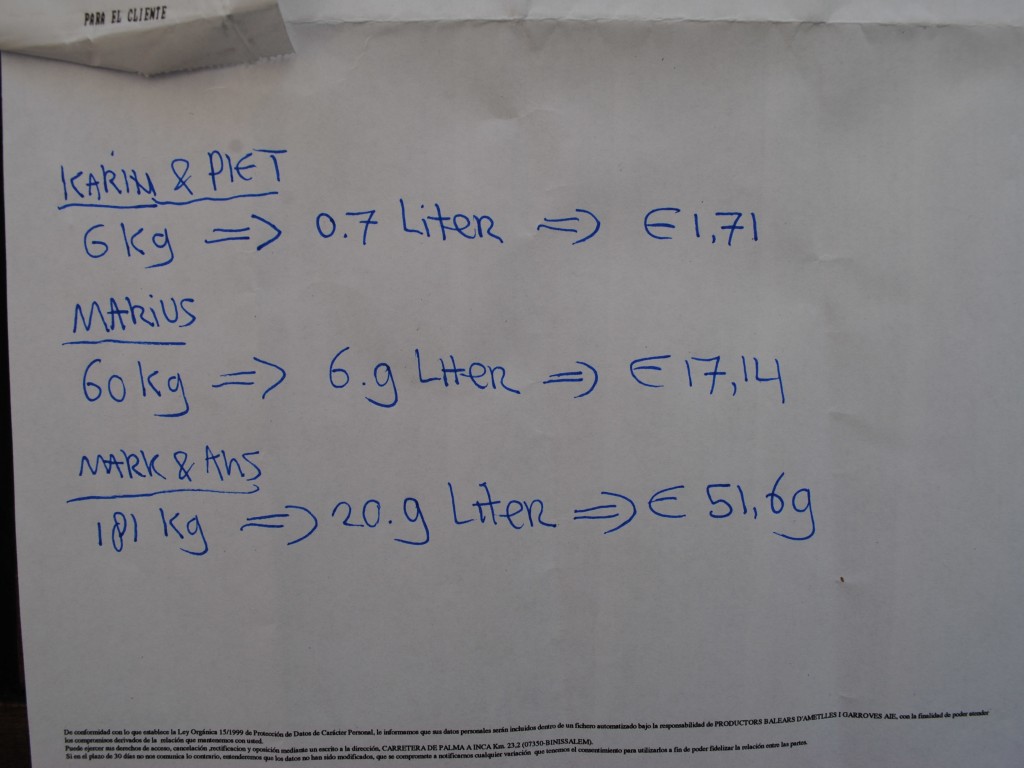 PARA EL CLIENTE
KARIN & PIET
6 kg => 0.7 Liter => € 1,71
MARIUS
60 kg => 6.9 Liter => € 17,14
MARK & Ans
181 kg => 20.9 Liter => € 51,69
De conformidad con lo que establece la Ley Orgánica 15/1999 de Protección de Datos de Carácter Personal, le informamos que sus datos personales serán incluidos dentro de un fichero automatizado bajo la responsabilidad de PRODUCTORS BALEARS D'AMETLLES I GARROVES AIE, con la finalidad de poder atender
los compromisos derivados de la relación que mantenemos con usted.
Puede ejercer sus derechos de acceso, cancelación, rectificación y oposición mediante un escrito a la dirección, CARRETERA DE PALMA A INCA Km. 23,2 (07350-BINISSALEM).
Si en el plazo de 30 días no nos comunica lo contrario, entenderemos que los datos no han sido modificados, que se compromete a notificarnos cualquier variación y que tenemos el consentimiento para utilizarlos a fin de poder fidelizar la relación entre las partes.